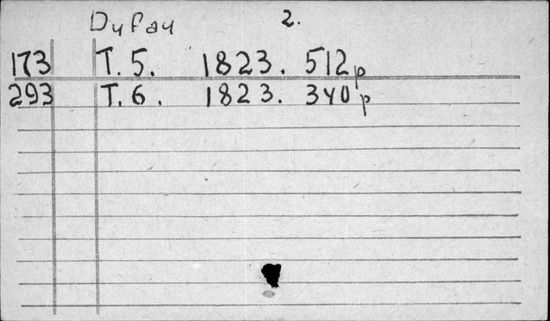 Dufau 2.
173 T. 5. 1823. 512p
293 T. 6. 1823. 340p